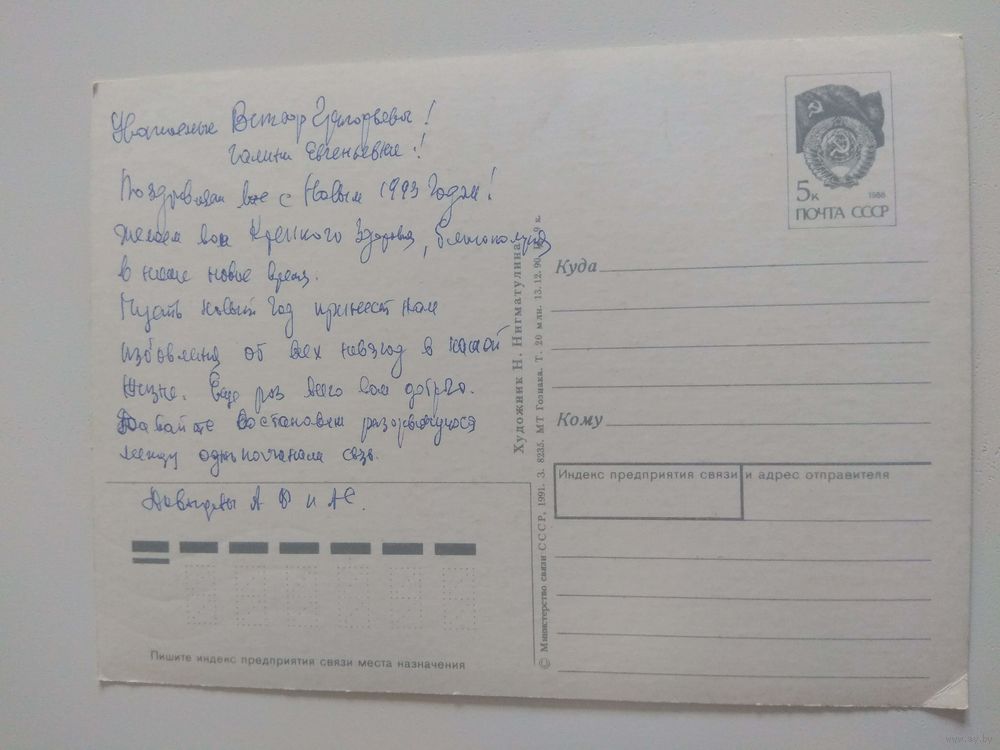 Уважаемые Виктор Григорьевич!
Галина Евгеньевна!
Поздравляем вас с Новым 1993 Годом!
Желаем вам Крепкого Здоровья, благополучия
в наше новое время.
Пусть новый год принесет нам
избовления от всех невзгод в нашей
жизни. Еще раз всего вам доброго.
Давайте востановим разорвавшуюся
между однополчанами связь.
Давыдовы А Ф и АС.
Пишите индекс предприятия связи места назначения
Художник Н. Нигматулина
© Министерство связи СССР, 1991. З. 8235. МТ Гознака. Т. 20 млн. 13.12.90. к.
5к 1988
ПОЧТА СССР
Куда
Кому
Индекс предприятия связи и адрес отправителя
www.ay.by